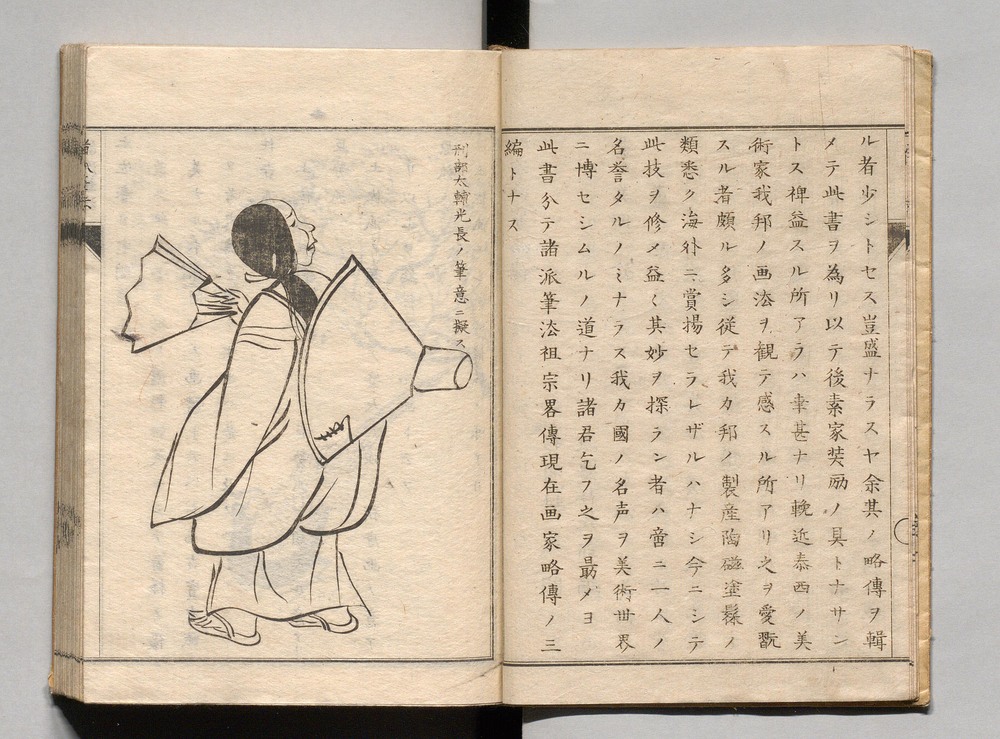 ル者少シトセス豈盛ナラスヤ余其ノ略傳ヲ輯
メテ此書ヲ為リ以テ後素家奨励ノ具トナサン
トス裨益スル所アラハ幸甚ナリ輓近泰西ノ美
術家我邦ノ画法ヲ観テ感スル所アリ之ヲ愛翫
スル者頗ル多シ従テ我カ邦ノ製産陶磁塗髹ノ
類悉ク海外ニ賞揚セラレザルハナシ今ニシテ
此技ヲ修メ益〻其妙ヲ探ラン者ハ啻ニ一人ノ
名誉タルノミナラス我カ國ノ名声ヲ美術世界
ニ博セシムルノ道ナリ諸君乞フ之ヲ勗メヨ
此書分テ諸派筆法祖宗畧傳現在画家略傳ノ三
編トナス
刑部太輔光長ノ筆意ニ擬ス